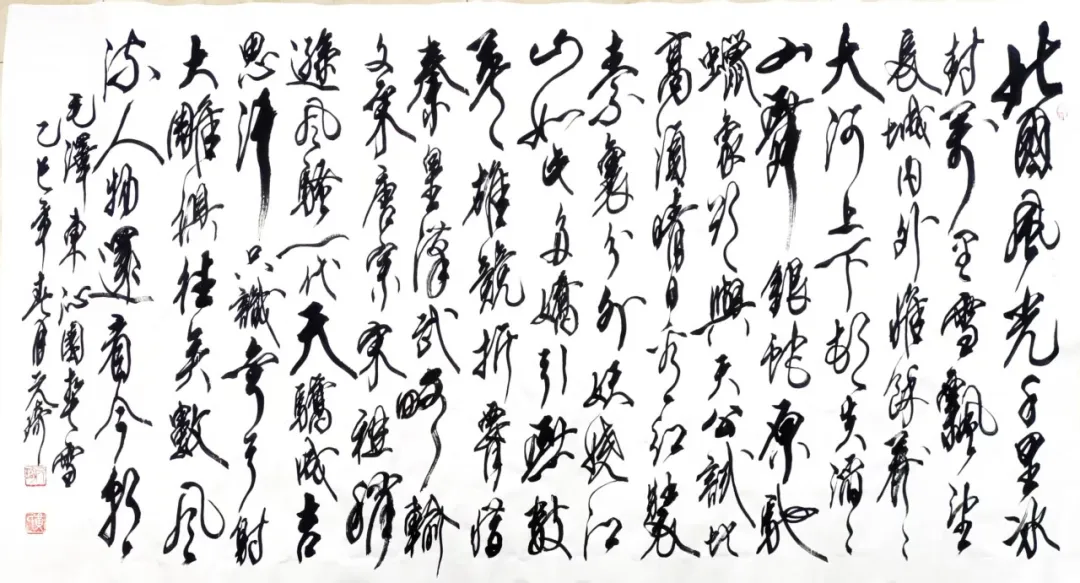 北國風光千里冰
封萬里雪飄望
長城内外惟餘莽〻
大河上下頓失滔〻
山舞銀蛇原馳
蠟象欲與天公試比
高須晴日看紅裝
素裹分外妖嬈江
山如此多嬌引無數
英雄競折腰惜
秦皇漢武略輸
文采唐宗宋祖稍
遜風騷一代天驕成吉
思汗只識彎弓射
大雕俱往矣數風
流人物還看今朝
毛澤東沁園春雪
乙巳年春月